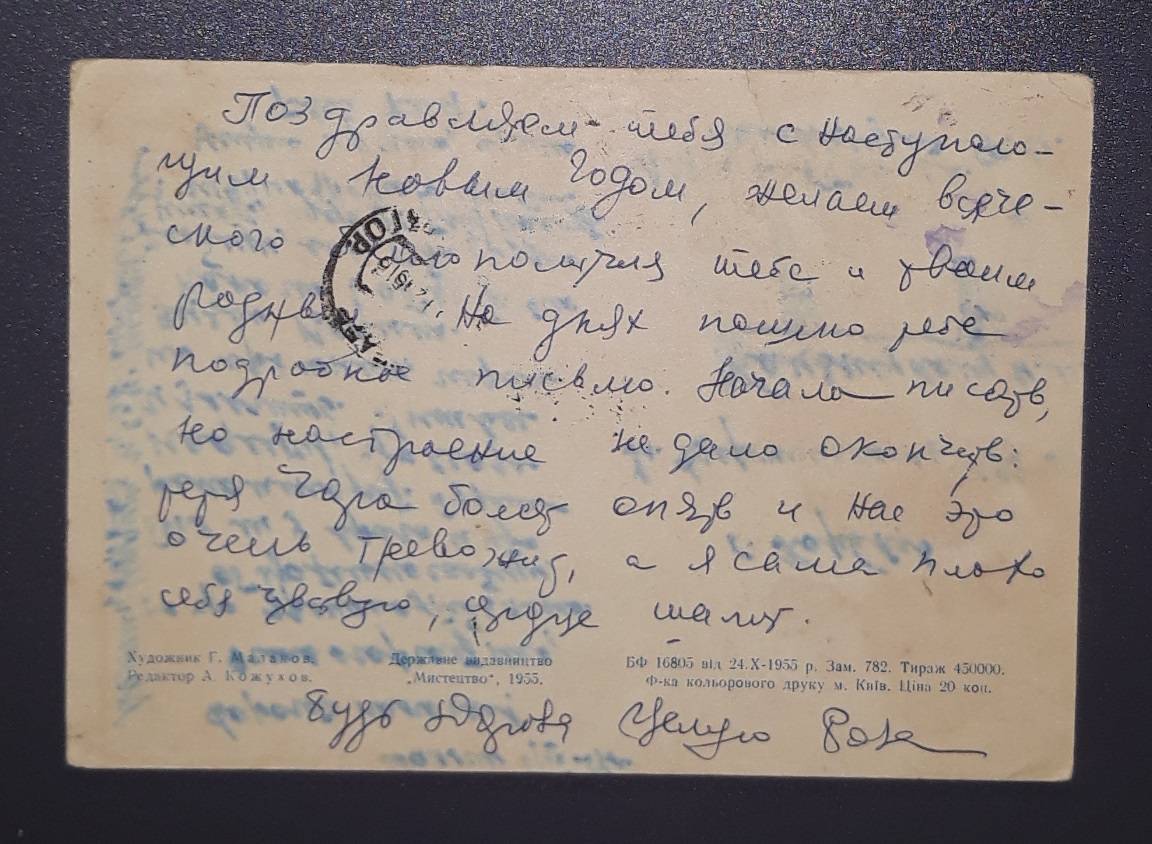 Поздравляем тебя с наступаю-
щим Новым Годом, желаем всяче-
ского благополучия тебе и твоим
родным. На днях пошлю тебе
подробное письмо. Начала писать,
но настроение не дало окончить:
тетя болеет опять и нас это
очень тревожит, а я сама плохо
себя чувствую, сердце шалит.
Художник Г. Малаков. Державне видавництво БФ 16805 від 24.X-1955 р. Зам. 782. Тираж 450000.
Редактор А. Кожухов. „Мистецтво", 1955. Ф-ка кольорового друку м. Київ. Ціна 20 коп.
Будь здорова Целую Роза